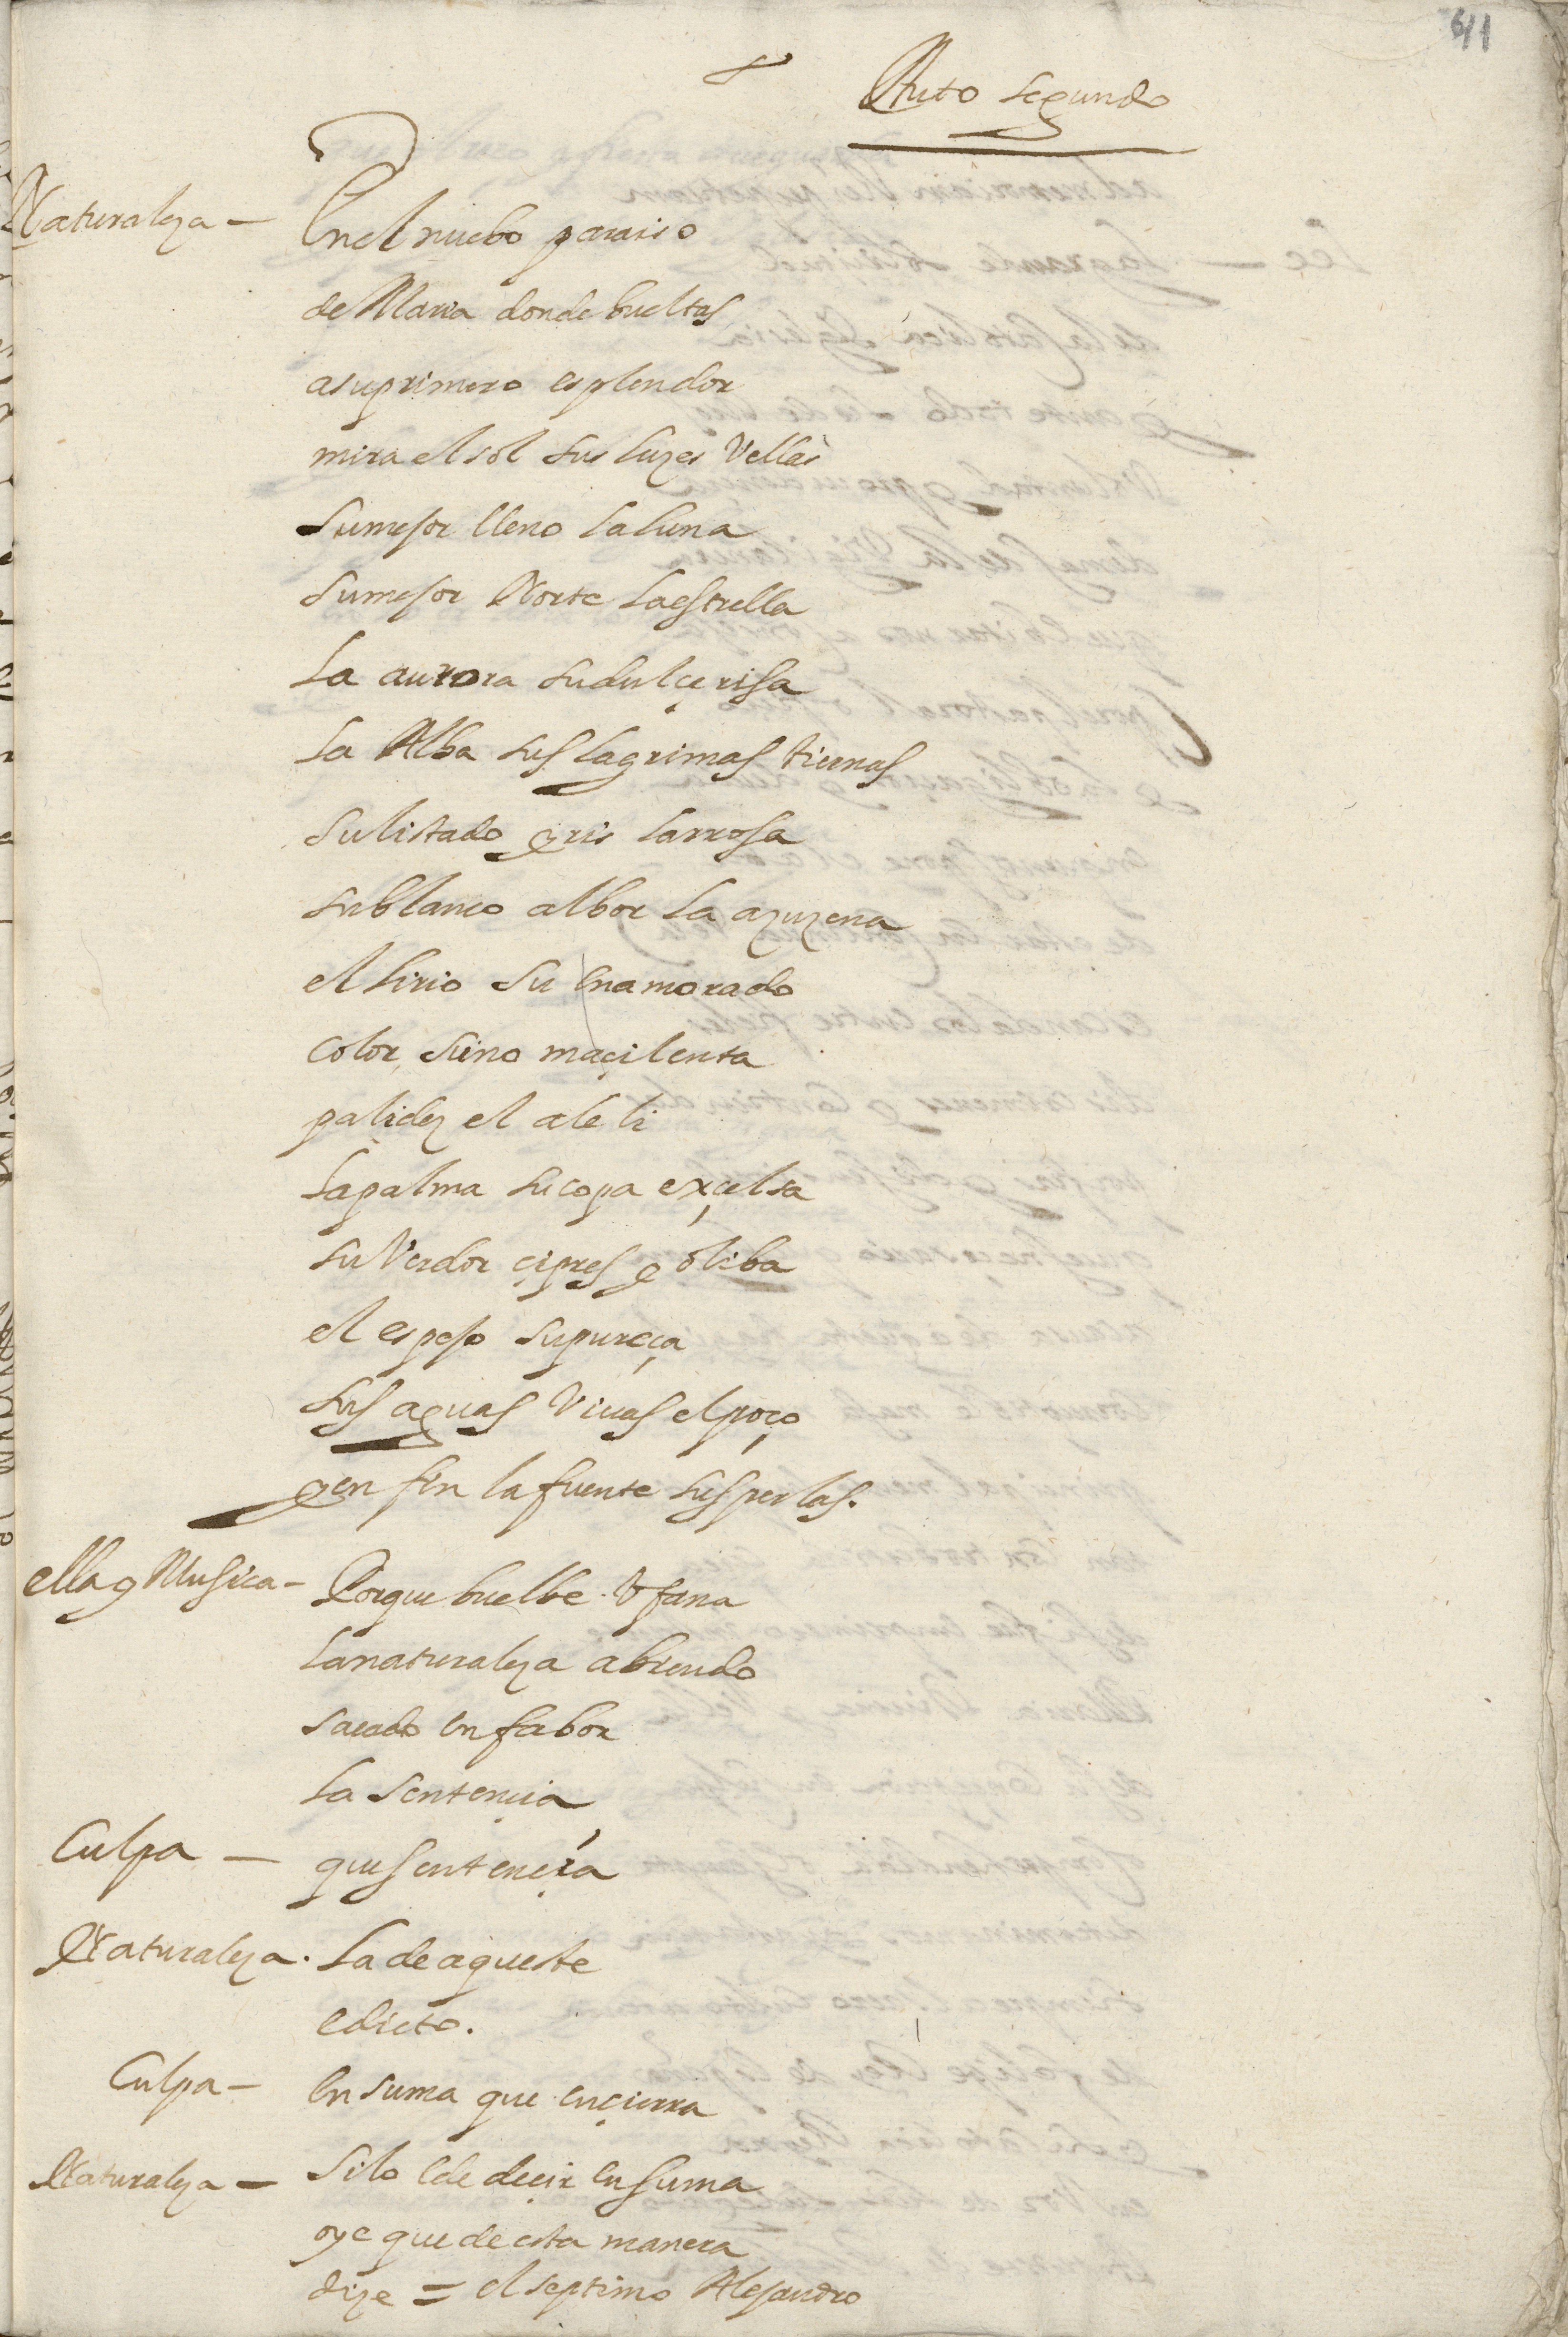 641
Auto segundo
Naturaleza – En el nuebo paraiso
de Maria donde bueltas
a su primero esplendor
mira el sol sus luzes Vellas
Su mejor lleno la luna
Su mejor Norte la estrella
La aurora su dulçe risa
La Alba sus lagrimas tiernas
Su listado gris la rrosa
su blanco albor la azuzena
el lirio su enamorado
Color, sino maçilenta
palidez el aleli
la palma su copa exçelsa
su Verdor çipres y oliba
el espejo su pureça
sus aguas Viuas el poço
y en fin la fuente sus perlas.
ella y Musica – Porque buelbe Vfana
la naturaleza abiendo
sacado en fabor
la Sentençia
Culpa – que sentençia
Naturaleza. La de aqueste
edicto.
Culpa – En suma que ençierra
Naturaleza – Si lo e de deçir en suma
oye que de esta manera
dize = el septimo Alejandro